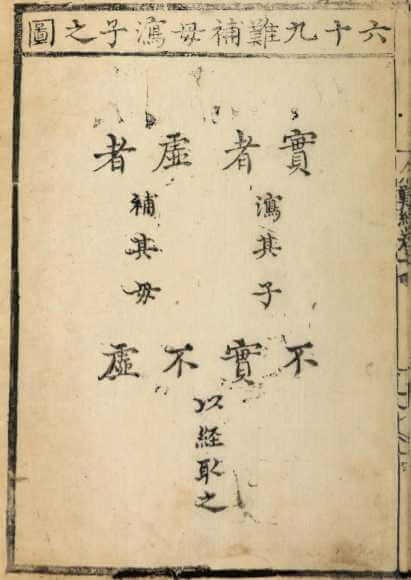 六十九難補母瀉子之圖
實者
瀉其子
虛者
補其母
不實不虛
以経取之